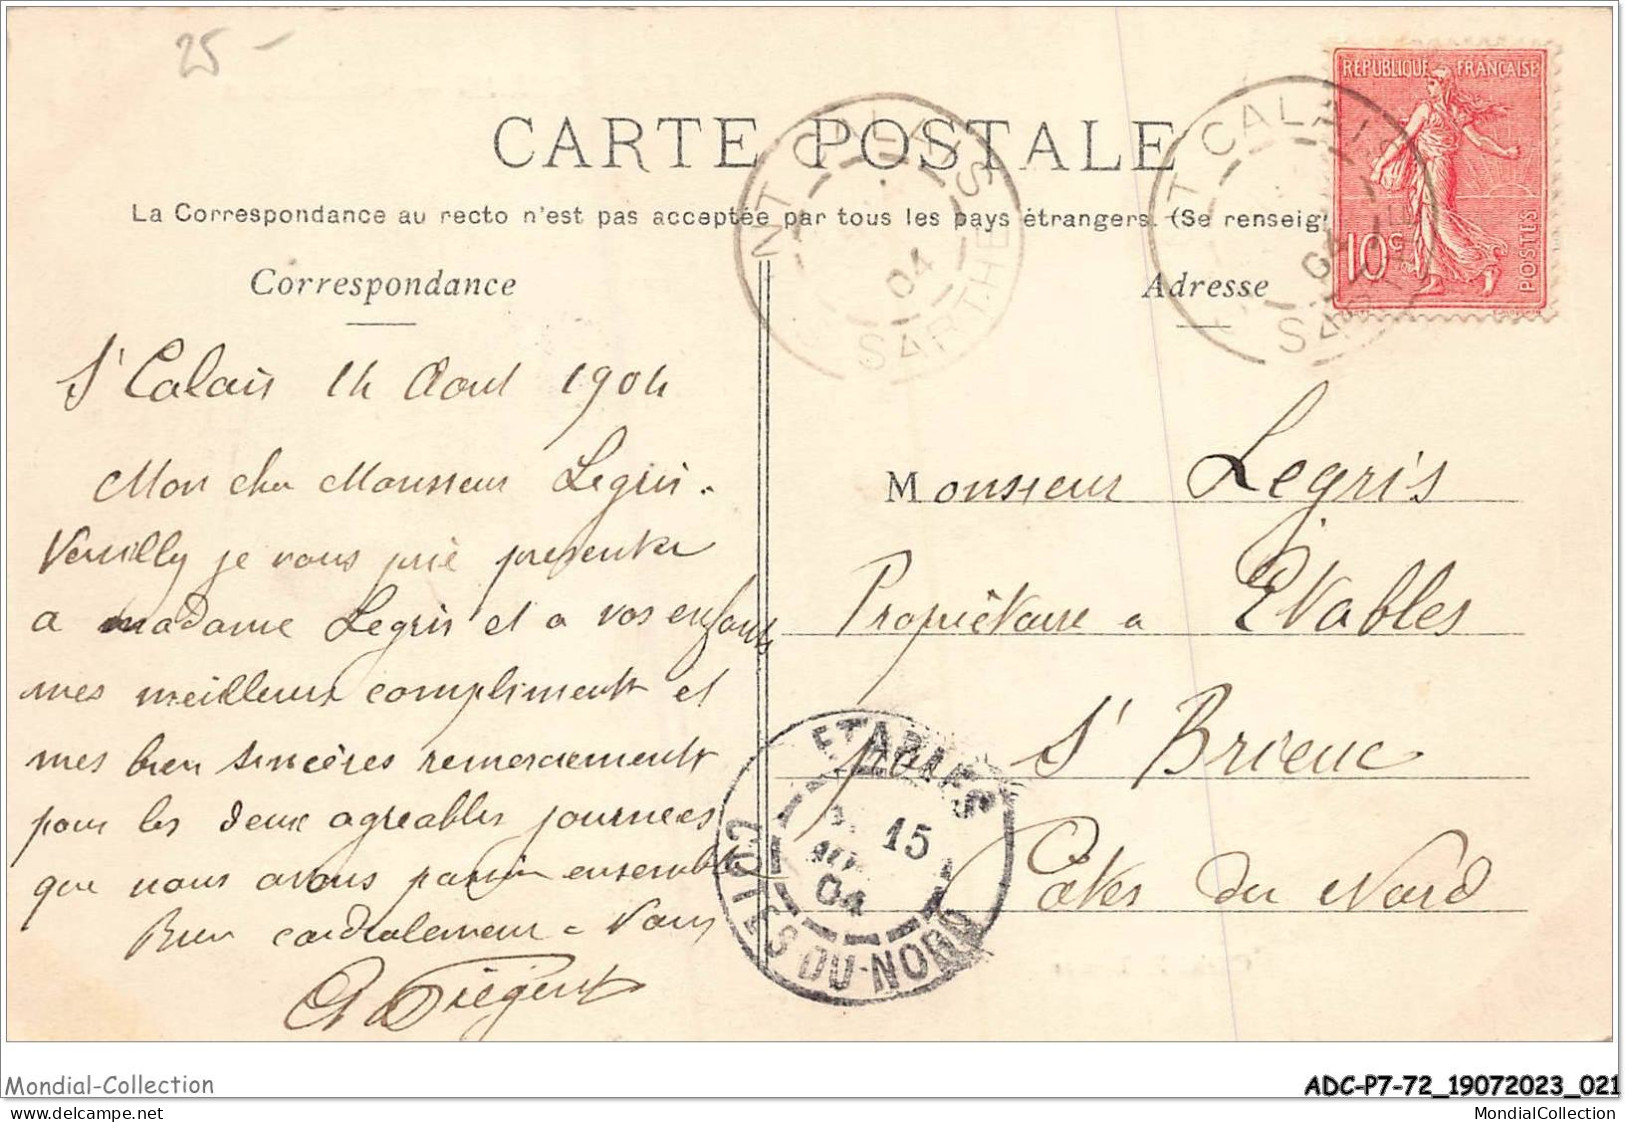 25 -
CARTE POSTALE
La Correspondance au recto n'est pas acceptée par tous les pays étrangers. (Se renseig
Correspondance
Adresse
REPUBLIQUE FRANÇAISE
10c
POSTES
NT CALAIS
04
SARTHE
T CALAIS
04
SART
St Calais 14 Aout 1904
Mon cher Monsieur Legris.
Veuilly je vous prie presenter
a madame Legris et a vos enfants
mes meilleurs compliments et
mes bien sincères remerciements
pour les deux agreables journees
que nous avons passer ensemble
Bien cordialement a vous
Monsieur Legris
Propriétaire a Etables
par St Brieuc
Côtes du Nord
ETABLES
15
04
COTES-DU-NORD
Mondial-Collection
ADC-P7-72_19072023_021
MondialCollection